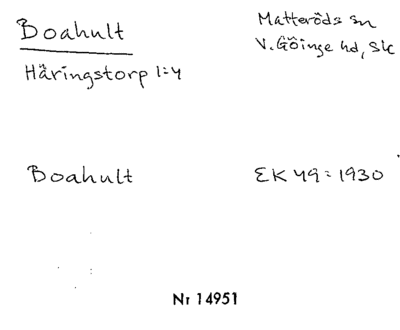 Boahult
Matteröds sn
V. Göinge hd, Sk
Häringstorp 1:4
Boahult
EK 49: 1930
Nr 14951